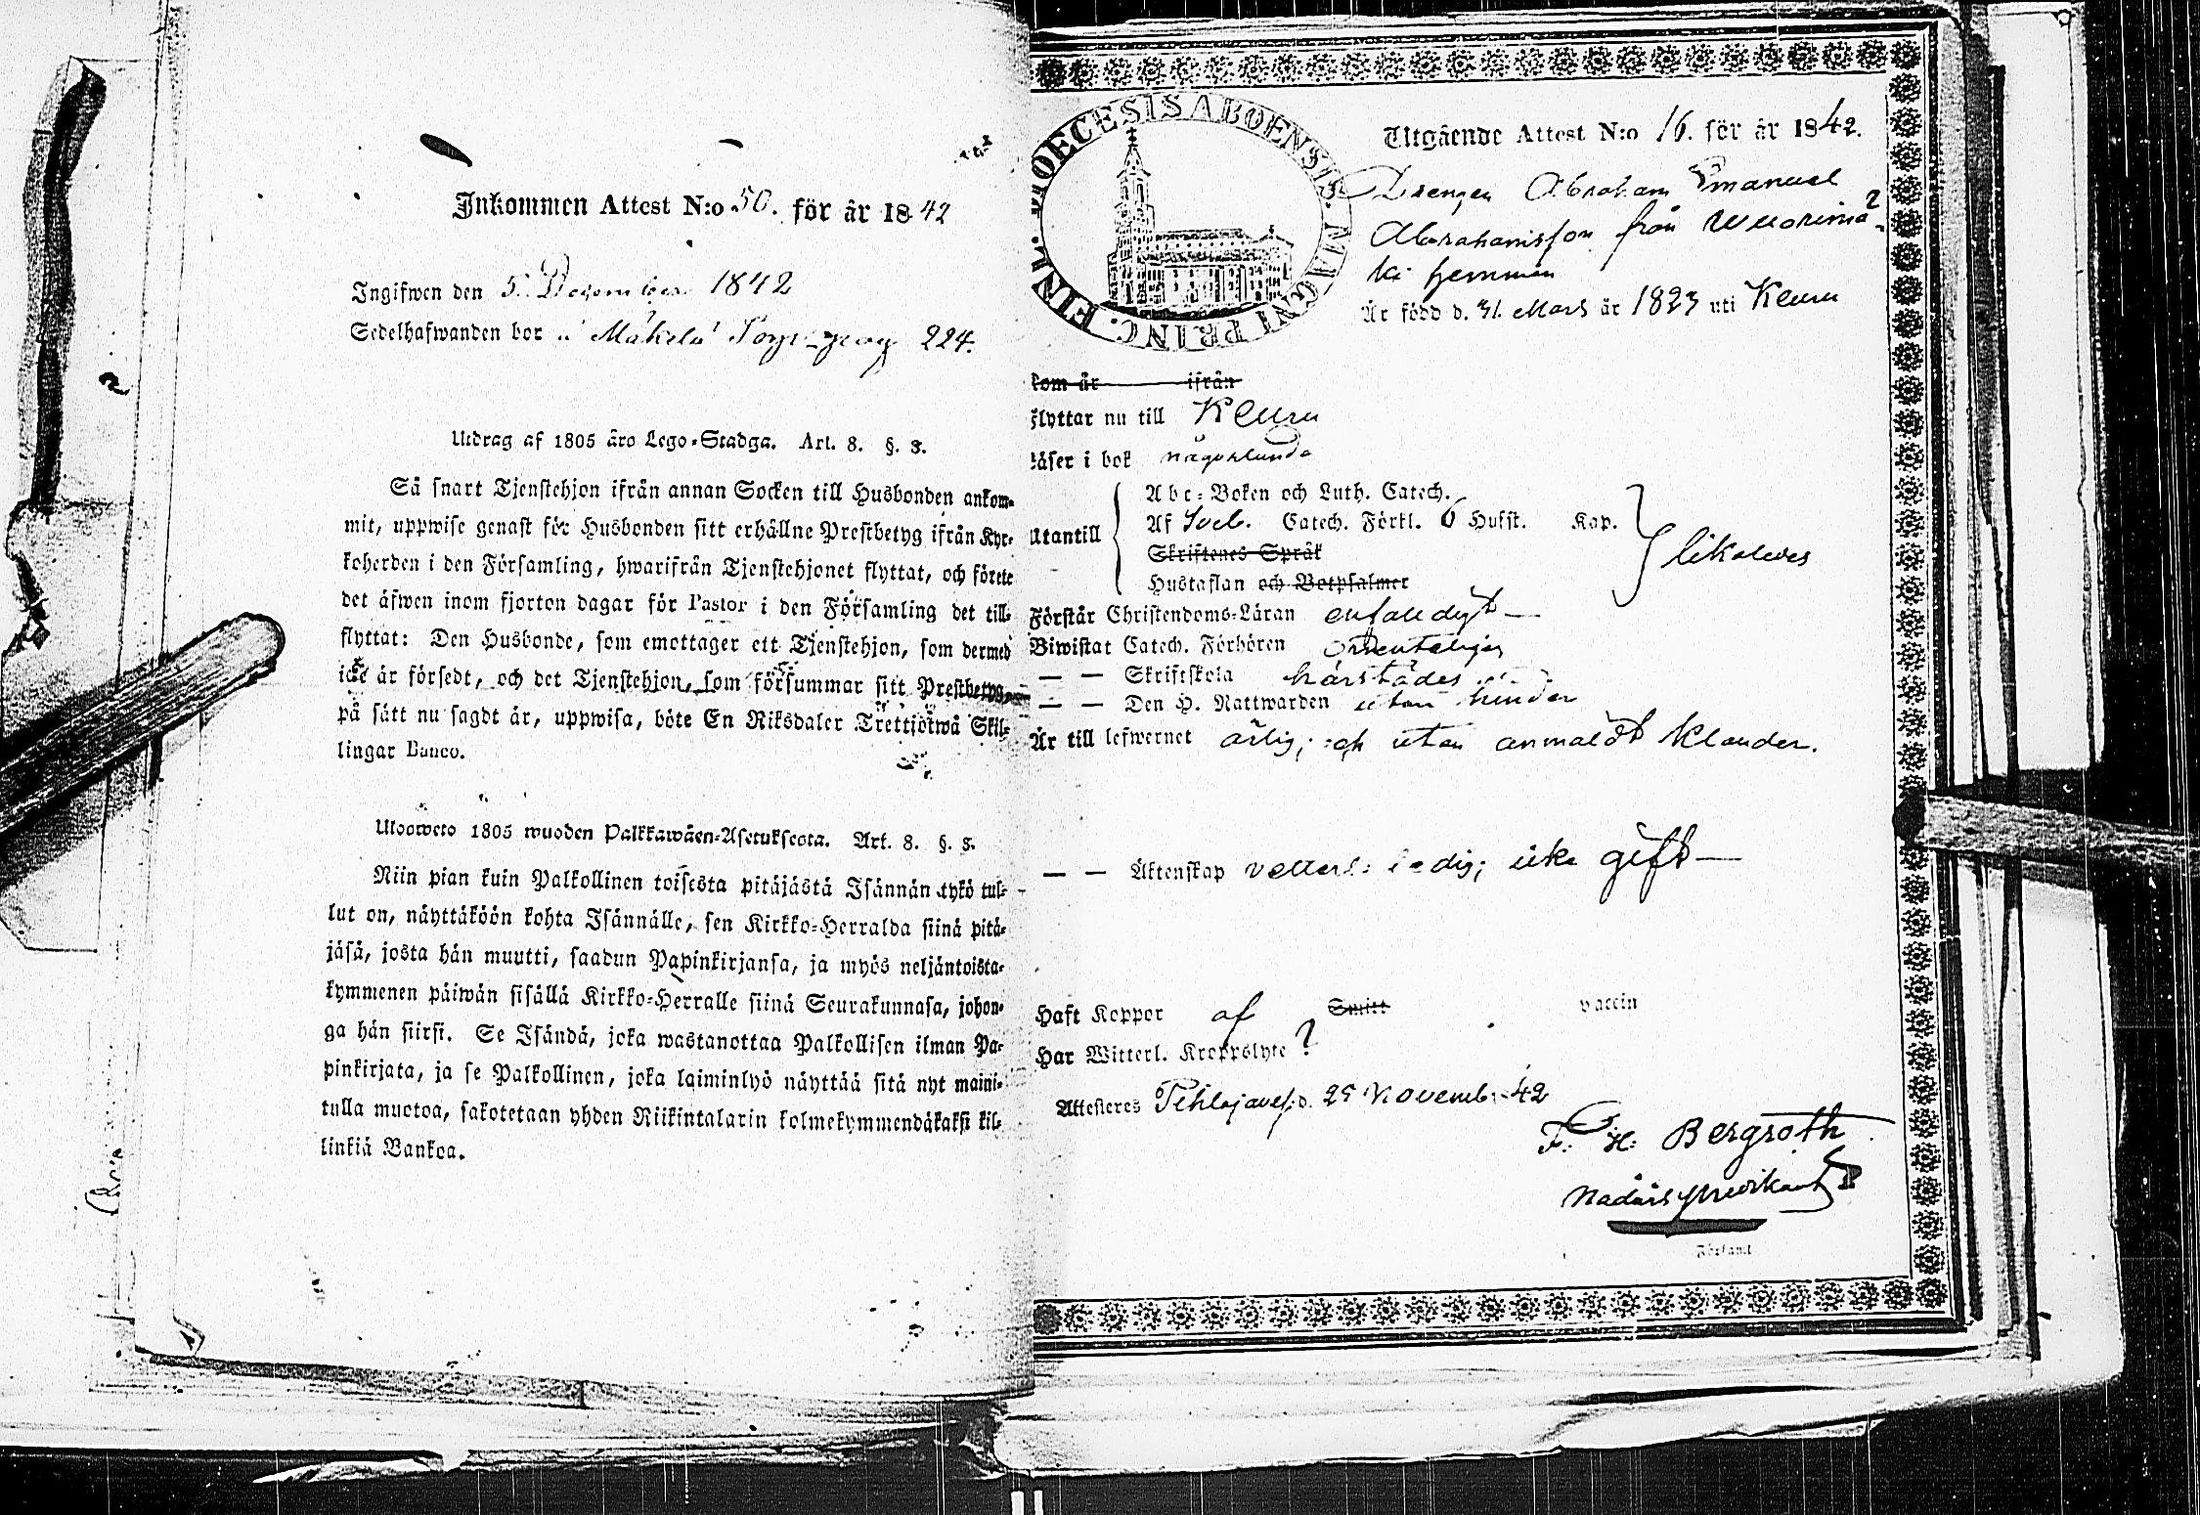 Inkommen Attest N:o 50. för år 1842
Ingifwen den 5. December 1842
Sedelhafwanden bor Mäkelä Torp 224.
Utdrag af 1805 års Lego-Stadga. Art. 8. §. 3.
Så snart Tjenstehjon ifrån annan Socken till Husbonden ankom-
mit, uppwise genast för Husbonden sitt erhållne Prestbetyg ifrån Kyr-
koherden i den Församling, hwarifrån Tjenstehjonet flyttat, och förete
det äfwen inom fjorton dagar för Pastor i den Församling det till-
flyttat: Den Husbonde, som emottager ett Tjenstehjon, som dermed
icke är försedt, och det Tjenstehjon, som försummar sitt Prestbetyg,
på sätt nu sagdt är, uppwisa, böte En Riksdaler Trettjotwå Skil-
lingar Banco.
Uloosweto 1805 wuoden Palkkawäen-Asetuksesta. Art. 8. §. 3.
Niin pian kuin Palkollinen toisesta pitäjästä Isännän tykö tul-
lut on, näyttäköön kohta Isännälle, sen Kirkko-Herralda siinä pitä-
jäsä, josta hän muutti, saadun Papinkirjansa, ja myös neljäntoista-
kymmenen päiwän sisällä Kirkko-Herralle siinä Seurakunnasa, johon-
ga hän siirsi. Se Isändä, joka wastanottaa Palkollisen ilman Pa-
pinkirjata, ja se Palkollinen, joka laiminlyö näyttää sitä nyt maini-
tulla muotoa, sakotetaan yhden Riikintalarin kolmekymmendäkaksi kil-
linkiä Bankoa.
DIOECESIS ABOENSIS. MAGNI PRINC. FINL.
Utgående Attest N:o 16. för år 1842.
Drengen Abraham Emanuel
Abrahamsson från Wuorimä-
ki hemman
Är född d. 31. Mars år 1823 uti Keuru
kom år ifrån
Flyttar nu till Keuru
Läser i bok någorlunda
Abc-Boken och Luth. Catech.
Utantill Af Sveb. Catech. Förkl. 6 Hufst. Kap. likaledes
Skriftenes Språk
Hustaflan och Botpsalmer
Förstår Christendoms-Läran enfaldigt
Biwistat Catech. Förhören ordenteligen
— — Skriftskola härstädes
— — Den H. Nattwarden utan hinder
Är till lefwernet ärlig, och utan anmäldt klander.
— — Äktenskap ledig; icke gift —
Haft Koppor af Smitt vaccin
Har Witterl. Kroppslyte ?
Attesteres Pihlajavesi d. 25 Novemb. 42
F. H. Bergroth
Nådårspredikant
Församl